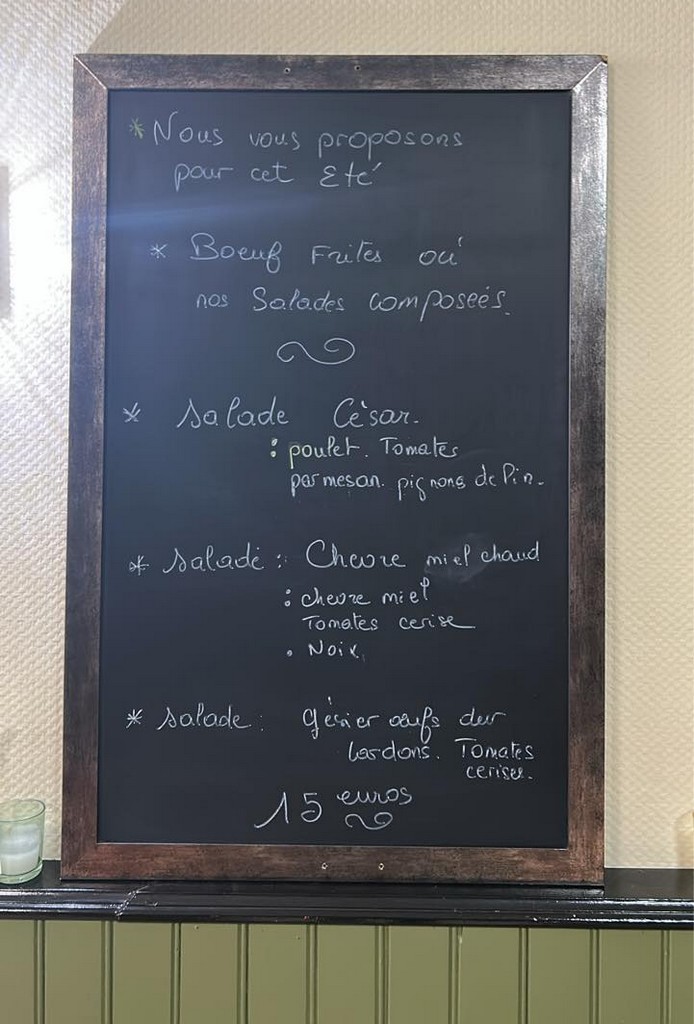 * Nous vous proposons
pour cet Eté
* Boeuf Frites oú
nos Salades composeés.
* Salade César.
: poulet. Tomates
parmesan. pignons de Pin.
* Salade : Chevre miel chaud
: chevre miel
Tomates cerise
. Noix.
* Salade : gésier oeufs dur
lardons. Tomates
cerises.
15 euros